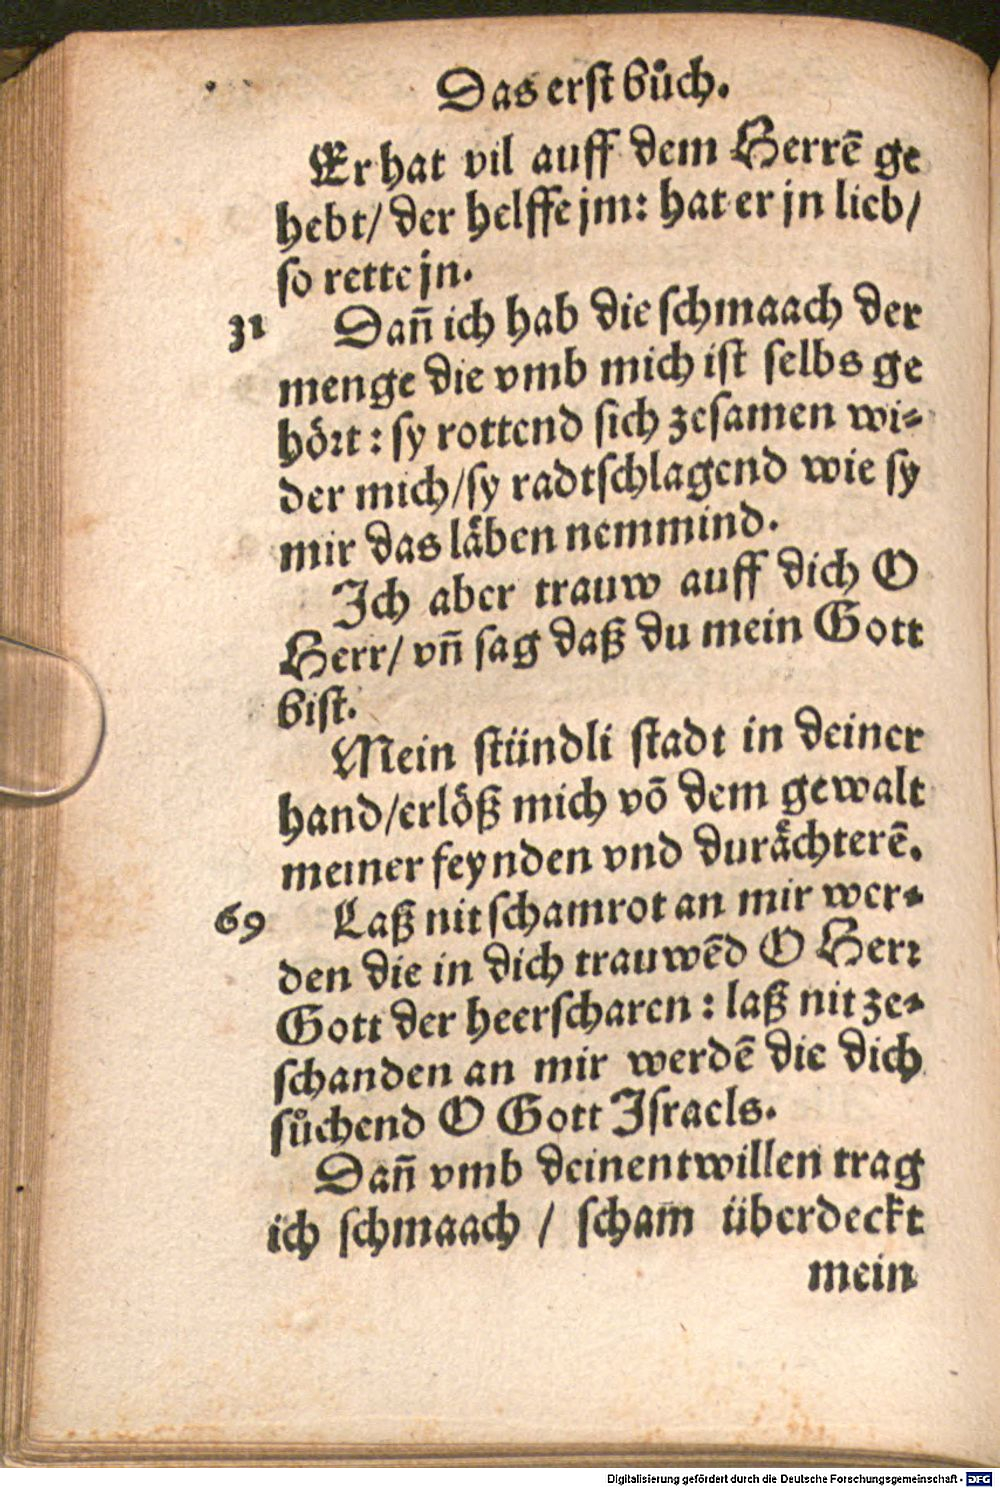 Das erst bůch.
Er hat vil auff dem Herrē ge
hebt/ der helffe jm: hat er jn lieb/
so rette jn.
31 Dañ ich hab die schmaach der
menge die vmb mich ist selbs ge
hört: sy rottend sich zesamen wi⸗
der mich/sy radtschlagend wie sy
mir das låben nemmind.
Ich aber trauw auff dich O
Herr/ vñ sag daß du mein Gott
bist.
Mein stündli stadt in deiner
hand/erlöß mich vō dem gewalt
meiner feynden vnd duråchterē.
69 Laß nit schamrot an mir wer⸗
den die in dich trauwēd O Herr
Gott der heerscharen: laß nit ze⸗
schanden an mir werdē die dich
sůchend O Gott Israels.
Dañ vmb deinentwillen trag
ich schmaach / scham überdeckt
mein
Digitalisierung gefördert durch die Deutsche Forschungsgemeinschaft - DFG